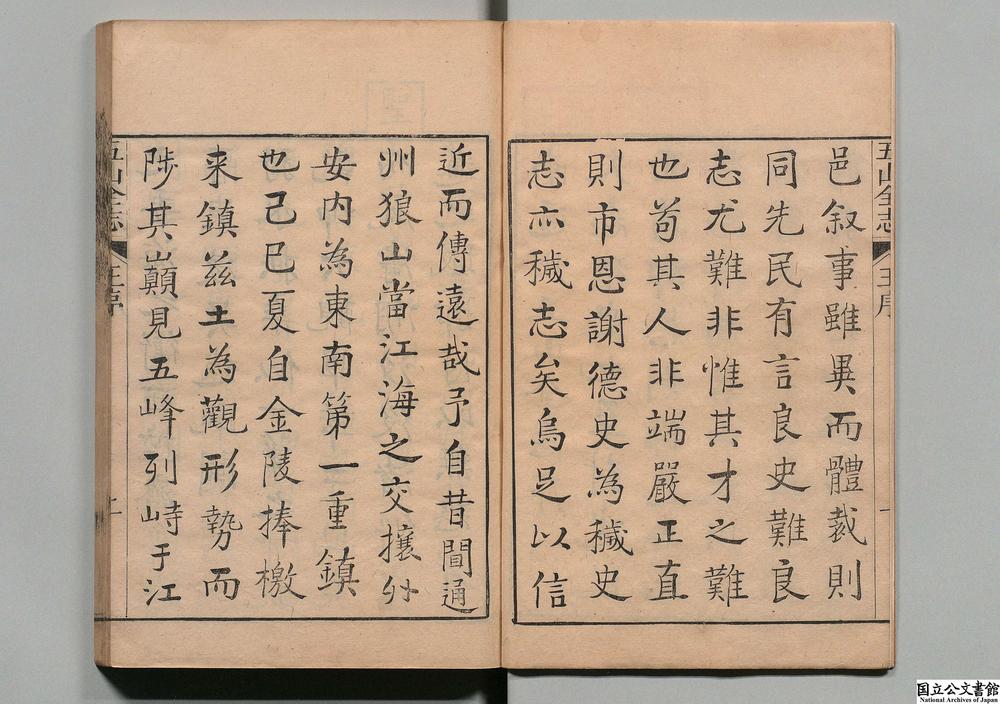 五山全志 王序 一
邑叙事雖異而體裁則
同先民有言良史難良
志尤難非惟其才之難
也苟其人非端嚴正直
則市恩謝德史為穢史
志亦穢志矣烏足以信
近而傳遠哉予自昔聞通
州狼山當江海之交攘外
安内為東南第一重鎮
也己巳夏自金陵捧檄
来鎮兹土為觀形勢而
陟其巔見五峰列峙于江
五山全志 王序
国立公文書館
National Archives of Japan